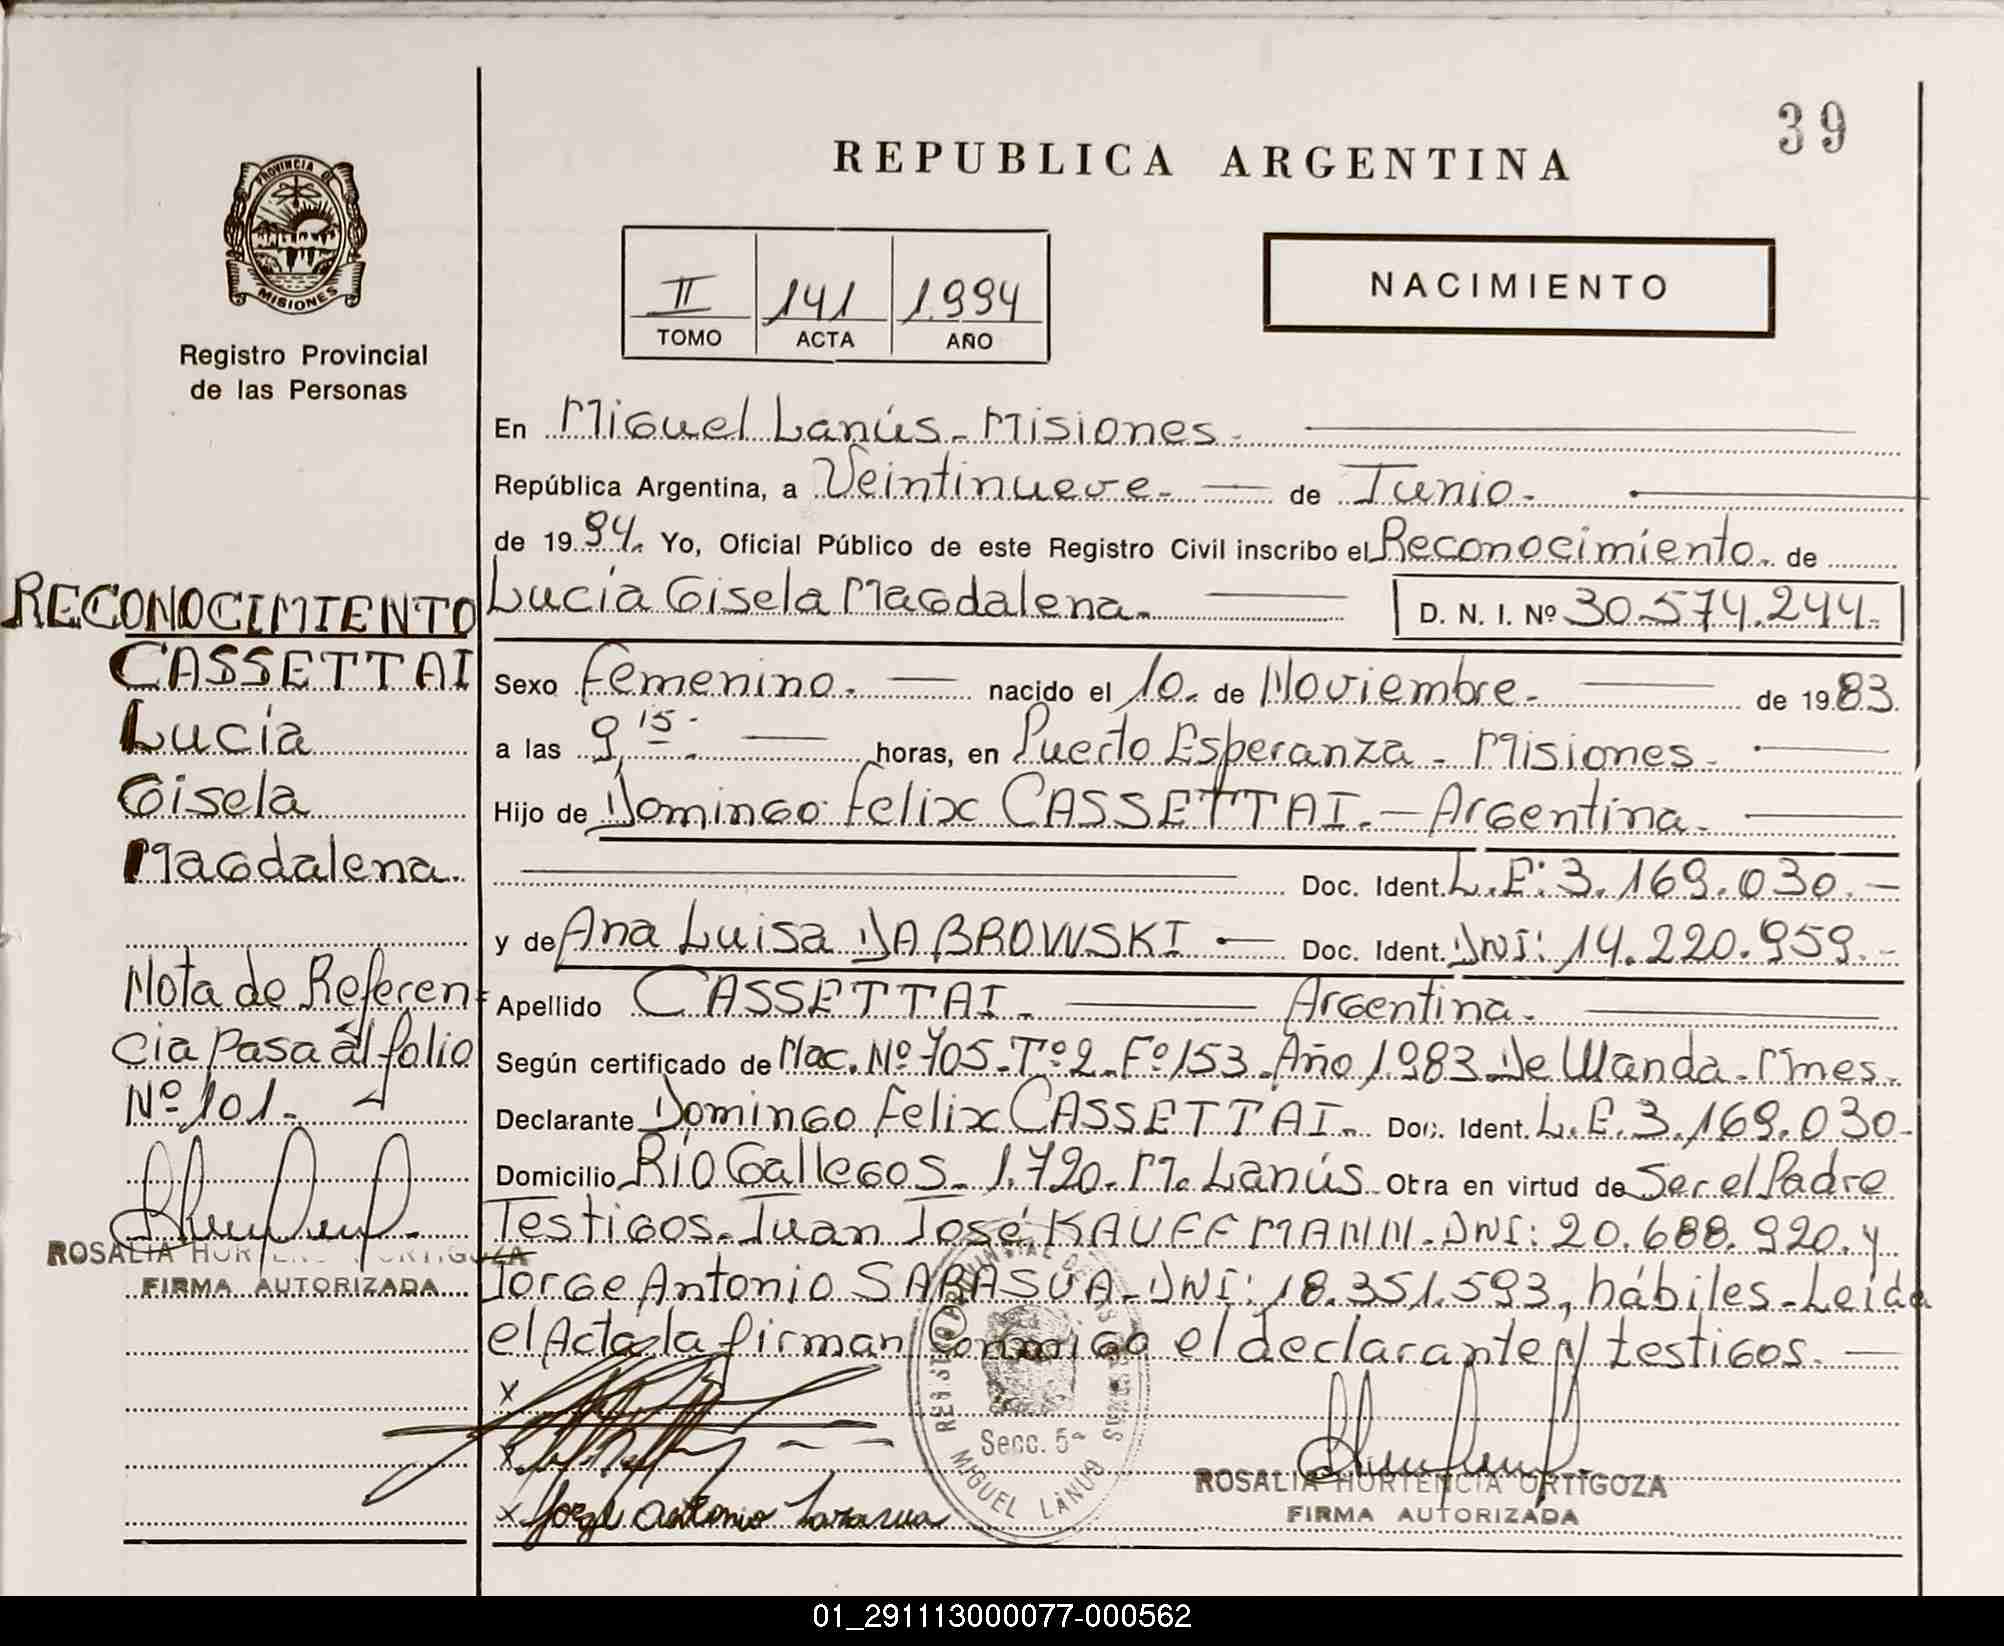 39
REPUBLICA ARGENTINA
PROVINCIA DE
MISIONES
Registro Provincial
de las Personas
II 141 1.994
TOMO ACTA AÑO
NACIMIENTO
En Miguel Lanús - Misiones -
República Argentina, a Veintinueve - de Junio -
de 1994. Yo, Oficial Público de este Registro Civil inscribo el Reconocimiento. de
Lucía Gisela Magdalena. D. N. I. Nº 30.574.244.
Sexo Femenino. nacido el 10. de Noviembre. de 1983.
a las 9,15. horas, en Puerto Esperanza - Misiones -
Hijo de Domingo Felix CASSETTAI. - Argentina.
Doc. Ident. L.E: 3.169.030. -
y de Ana Luisa DABROWSKI - Doc. Ident. DNI: 14.220.959. -
Apellido CASSETTAI. Argentina.
Según certificado de Nac. Nº 705 - Tº 2 - Fº 153 - Año 1.983 - De Wanda - Mnes.
Declarante Domingo Felix CASSETTAI. Doc. Ident. L.E. 3.169.030 -
Domicilio Río Gallegos - 1.720 - M. Lanús Obra en virtud de Ser el Padre
Testigos - Juan José KAUFFMANN - DNI: 20.688.920. y
Jorge Antonio SARASUA - DNI: 18.351.593, hábiles - Leída
el Acta la firman Conmigo el declarante y testigos. -
x
x
x Jorge Antonio Sarasua
Secc. 5ª
MIGUEL LANUS
ROSALIA HORTENCIA ORTIGOZA
FIRMA AUTORIZADA
RECONOCIMIENTO
CASSETTAI
Lucía
Gisela
Magdalena.
Nota de Referen-
cia pasa al folio
Nº 101.
ROSALIA HORTENCIA ORTIGOZA
FIRMA AUTORIZADA
01_291113000077-000562